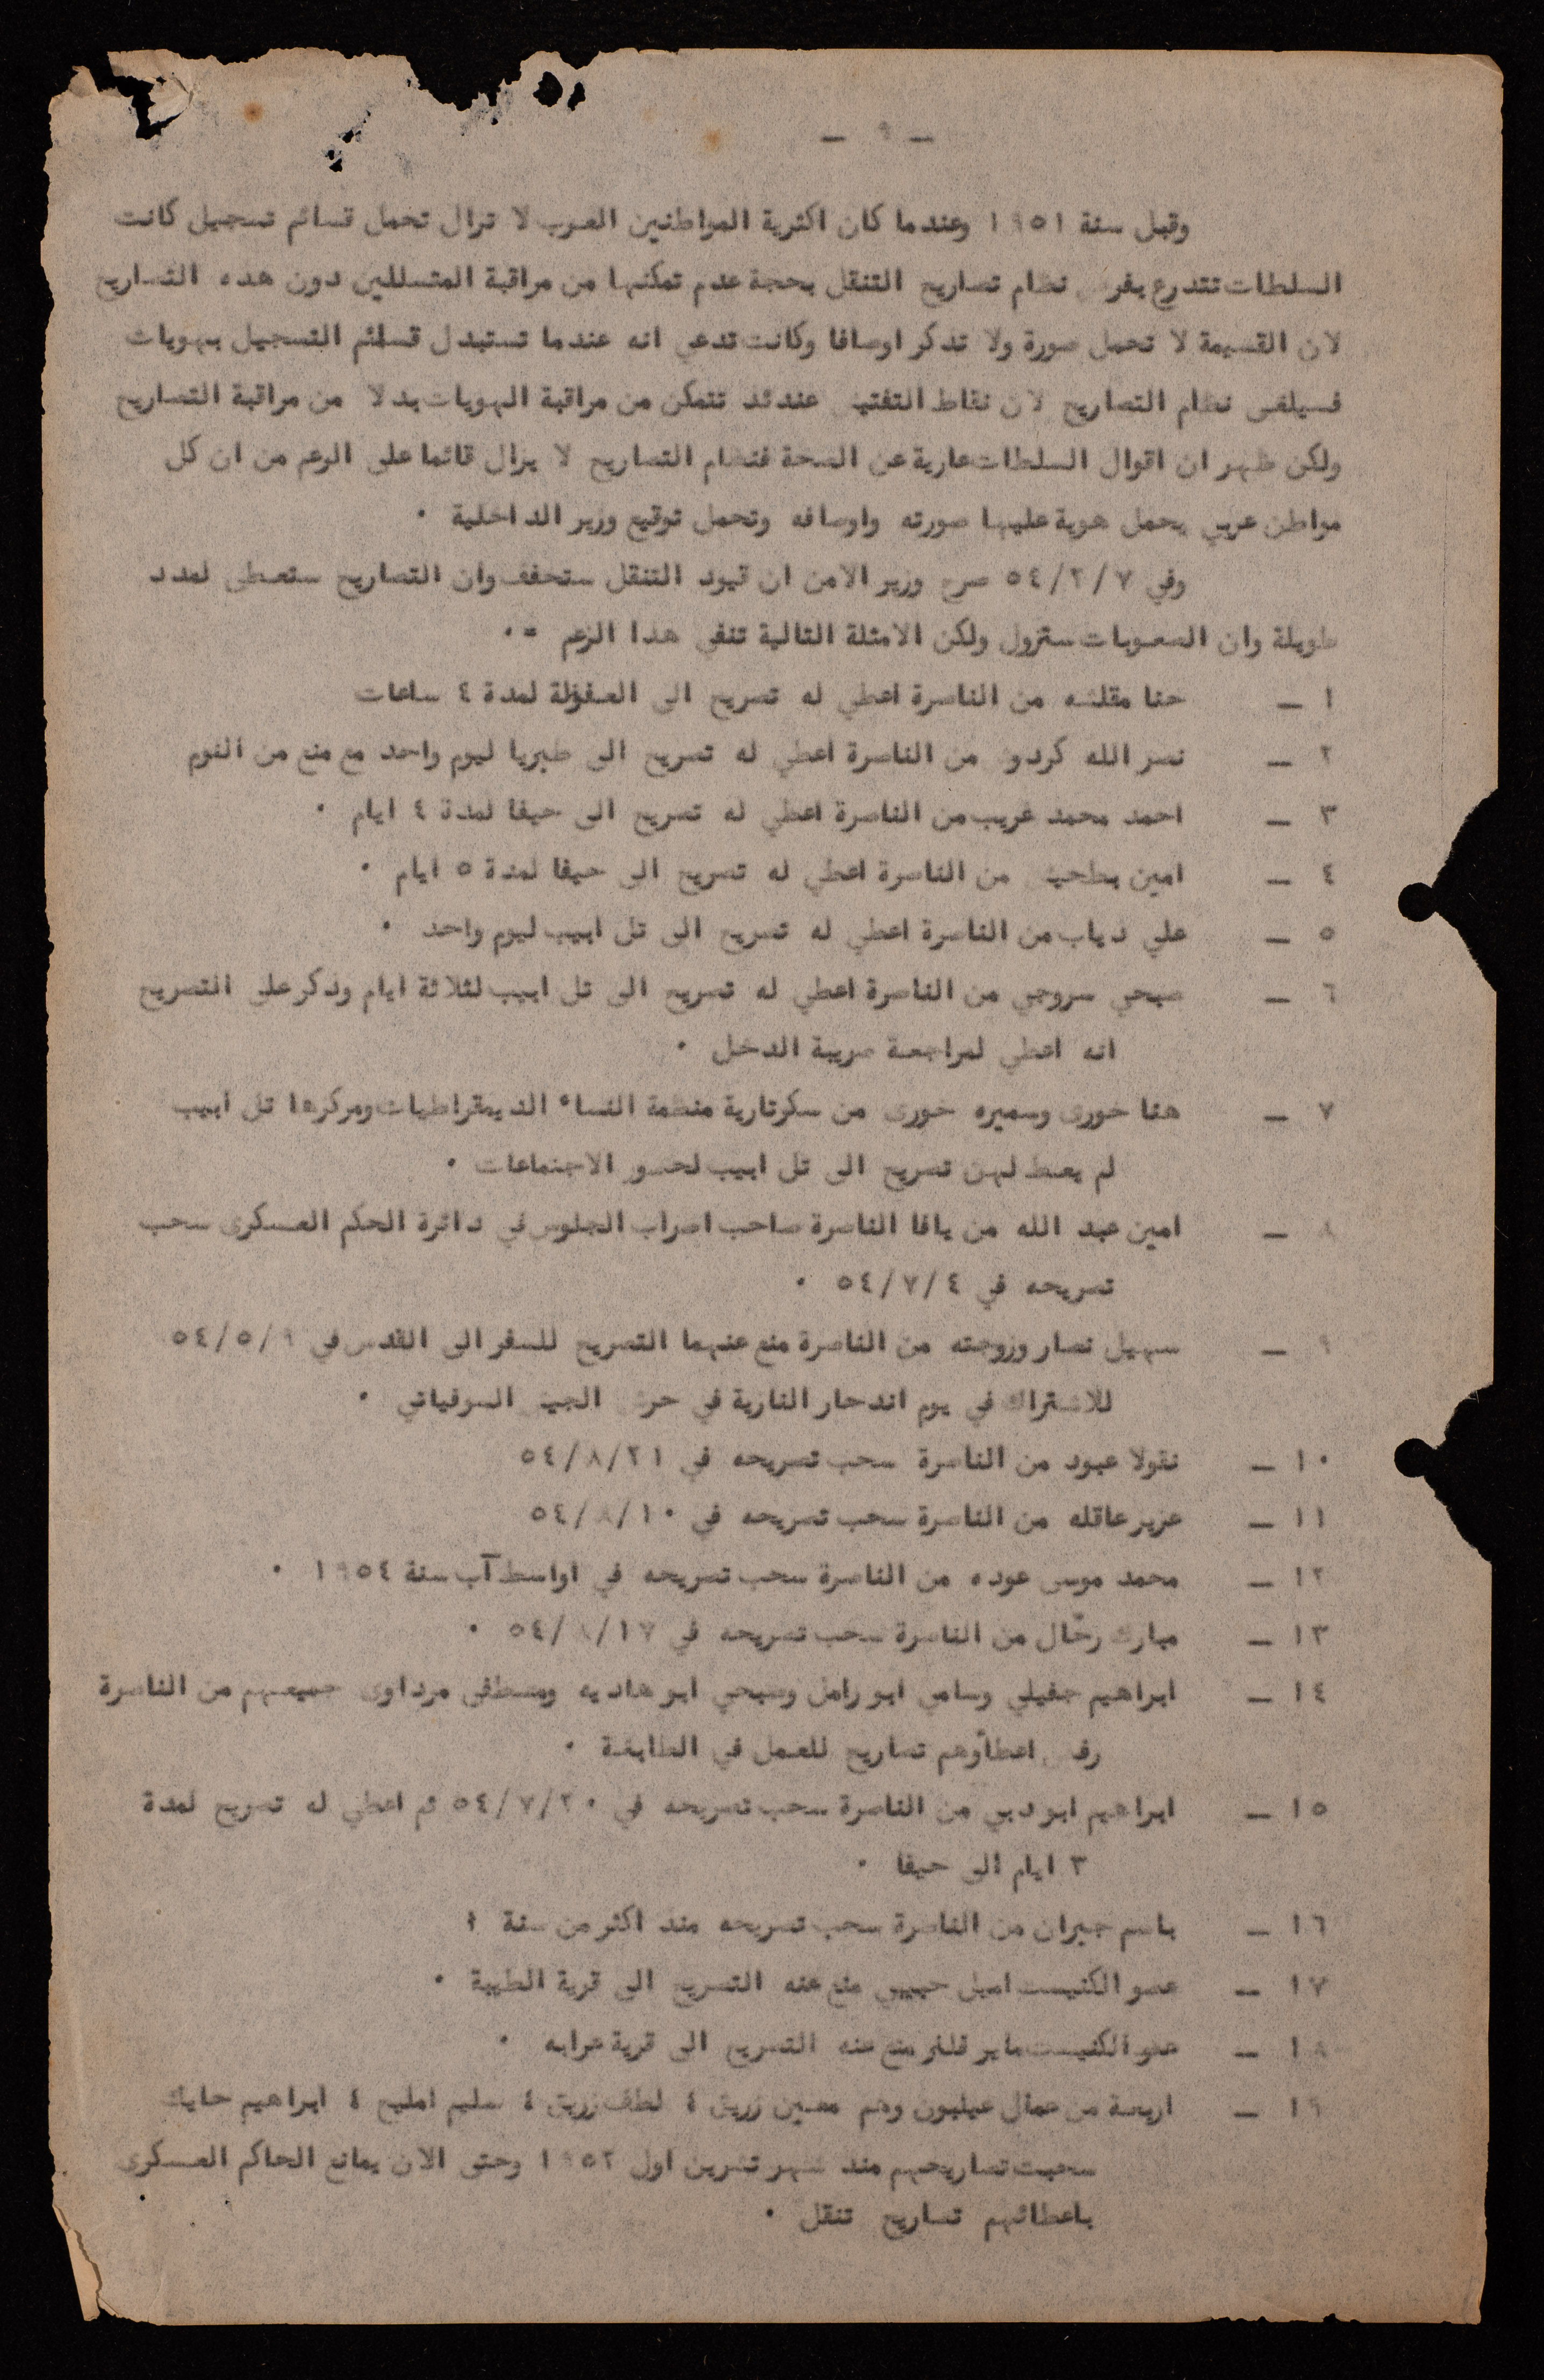 — ٩ —
وقبل سنة ١٩٥١ وعندما كان اكثرية المواطنين العرب لا تزال تحمل قسائم تسجيل كانت
السلطات تتدرع بفرض نظام تصاريح التنقل بحجة عدم تمكنها من مراقبة المتسللين دون هذه التصاريح
لان القسيمة لا تحمل صورة ولا تذكر اوصافا وكانت تدعي انه عندما تستبدل قسائم التسجيل بهويات
فسيلغى نظام التصاريح لان نقاط التفتيش عندئذ تتمكن من مراقبة الهويات بدلا من مراقبة التصاريح
ولكن ظهر ان اقوال السلطات عارية عن الصحة فنظام التصاريح لا يزال قائما على الرعم من ان كل
مواطن عربي يحمل هوية عليها صورته واوصافه وتحمل توقيع وزير الداخلية ٠
وفي ٥٤/٢/٧ صرح وزير الامن ان قيود التنقل ستخفف وان التصاريح ستعطى لمدد
طويلة وان الصعوبات ستزول ولكن الامثلة التالية تنفي هذا الزعم =٠
١ — حنا مقلشه من الناصرة اعطي له تصريح الى العفولة لمدة ٤ ساعات
٢ — نصر الله كردوش من الناصرة اعطي له تصريح الى طبريا ليوم واحد مع منع من النوم
٣ — احمد محمد غريب من الناصرة اعطي له تصريح الى حيفا لمدة ٤ ايام ٠
٤ — امين بطحيش من الناصرة اعطي له تصريح الى حيفا لمدة ٥ ايام ٠
٥ — علي دياب من الناصرة اعطي له تصريح الى تل ابيب ليوم واحد ٠
٦ — صبحي سروجي من الناصرة اعطي له تصريح الى تل ابيب لثلاثة ايام وذكر على التصريح
انه اعطي لمراجعة ضريبة الدخل ٠
٧ — هنا خورى وسميره خورى من سكرتارية منظمة النساء الديمقراطيات ومركزها تل ابيب
لم يعط لهن تصريح الى تل ابيب لحضور الاجتماعات ٠
٨ — امين عبد الله من يافا الناصرة صاحب اضراب الجلوس في دائرة الحكم العسكرى سحب
تصريحه في ٥٤/٧/٤ ٠
٩ — سهيل نصار وزوجته من الناصرة منع عنهما التصريح للسفر الى القدس في ٥٤/٥/٩
للاشتراك في يوم اندحار النازية في حرش الجيش السوفياتي ٠
١٠ — نقولا عبود من الناصرة سحب تصريحه في ٥٤/٨/٢١
١١ — عزيز عاقله من الناصرة سحب تصريحه في ٥٤/٨/١٠
١٢ — محمد موسى عوده من الناصرة سحب تصريحه في اواسط آب سنة ١٩٥٤ ٠
١٣ — مبارك رحّال من الناصرة سحب تصريحه في ٥٤/٨/١٧ ٠
١٤ — ابراهيم جفيلي وسامي ابو رامل وصبحي ابو هاديه ومصطفى مرداوى جميعهم من الناصرة
رفض اعطاؤهم تصاريح للعمل في الطابغة ٠
١٥ — ابراهيم ابو دبي من الناصرة سحب تصريحه في ٥٤/٧/٢٠ ثم اعطي له تصريح لمدة
٣ ايام الى حيفا ٠
١٦ — باسم جبران من الناصرة سحب تصريحه منذ اكثر من سنة
١٧ — عضو الكنيست اميل حبيبي منع عنه التصريح الى قرية الطيبة ٠
١٨ — عضو الكنيست ماير فلنر منع عنه التصريح الى قرية عرابه ٠
١٩ — اربعة من عمال عيلبون وهم معين زريق ٤ لطف زريق ٤ سليم املیح ٤ ابراهيم حايك
سحبت تصاريحهم منذ شهر تشرين اول ١٩٥٢ وحتى الان يمانع الحاكم العسكرى
باعطائهم تصاريح تنقل ٠